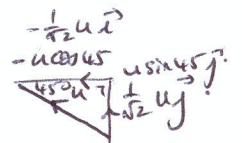 -1/√2 u i
-u cos45
u sin 45 j
45° u
1/√2 u j